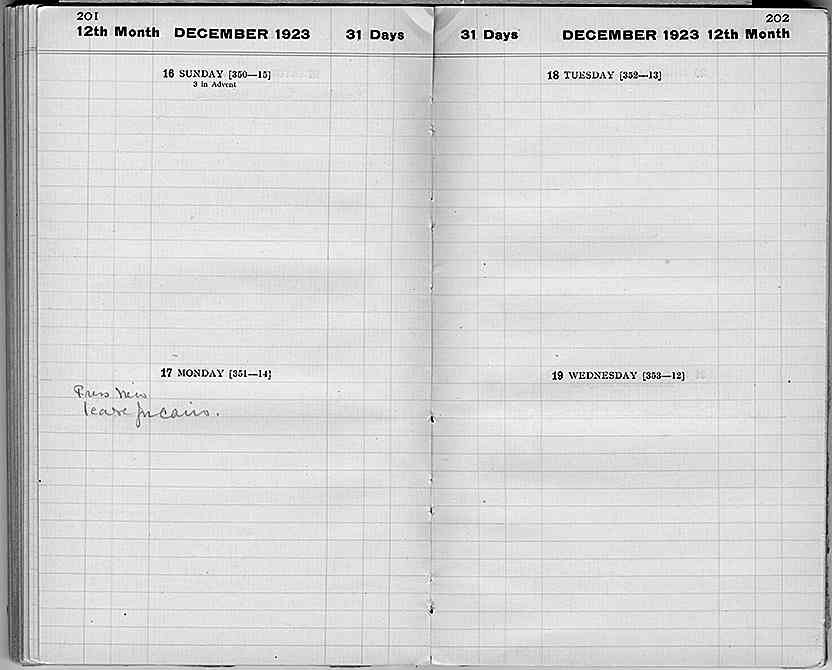 201
12th Month DECEMBER 1923 31 Days
16 SUNDAY [350—15]
3 in Advent
17 MONDAY [351—14]
Press
leave for Cairo.
202
31 Days DECEMBER 1923 12th Month
18 TUESDAY [352—13]
19 WEDNESDAY [353—12]